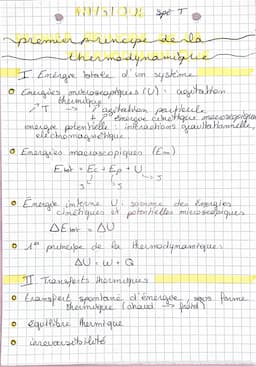 Spé T
premier principe de la
thermodynamique
I Energie totale d'un système
Energies microscopiques (U) : agitation
thermique
↗T → ↗ agitation particule
+ ↗ énergie cinétique microscopique
energie potentielle : interactions gravitationnelle,
électromagnétique
Energies macroscopiques (Em)
Etot = Ec + Ep + U
Energie interne U : somme des énergies
cinétiques et potentielles microscopiques
ΔEtot = ΔU
1er principe de la thermodynamique:
ΔU = W + Q
II Transferts thermiques
transfert spontané d'énergie, sous forme
thermique (chaud → froid)
équilibre thermique
irréversibilité